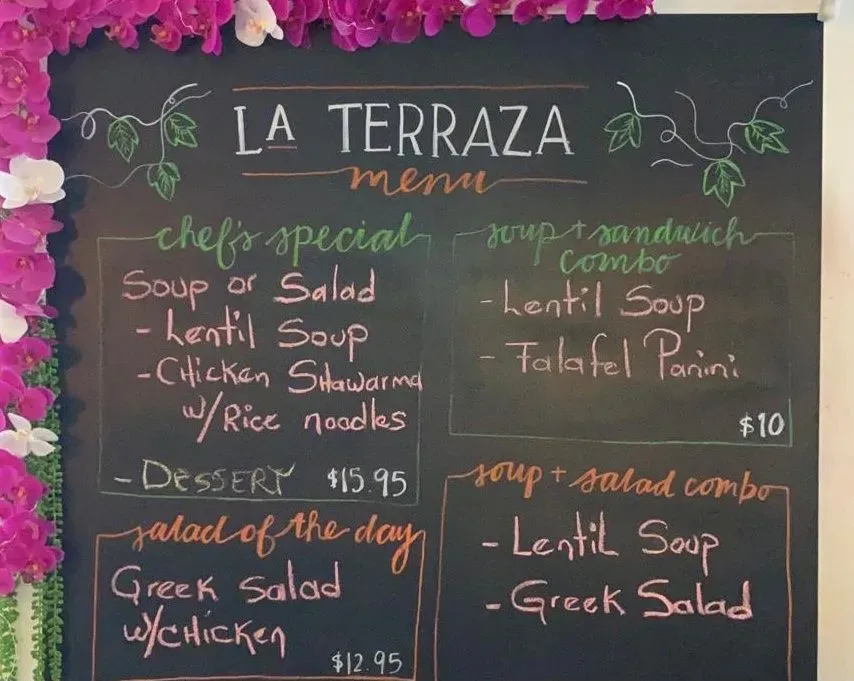 LA TERRAZA
menu
chef's special
Soup or Salad
- Lentil Soup
- Chicken Shawarma
w/Rice noodles
- Dessert $15.95
soup + sandwich
combo
- Lentil Soup
- Falafel Panini
$10
salad of the day
Greek Salad
w/chicken
$12.95
soup + salad combo
- Lentil Soup
- Greek Salad